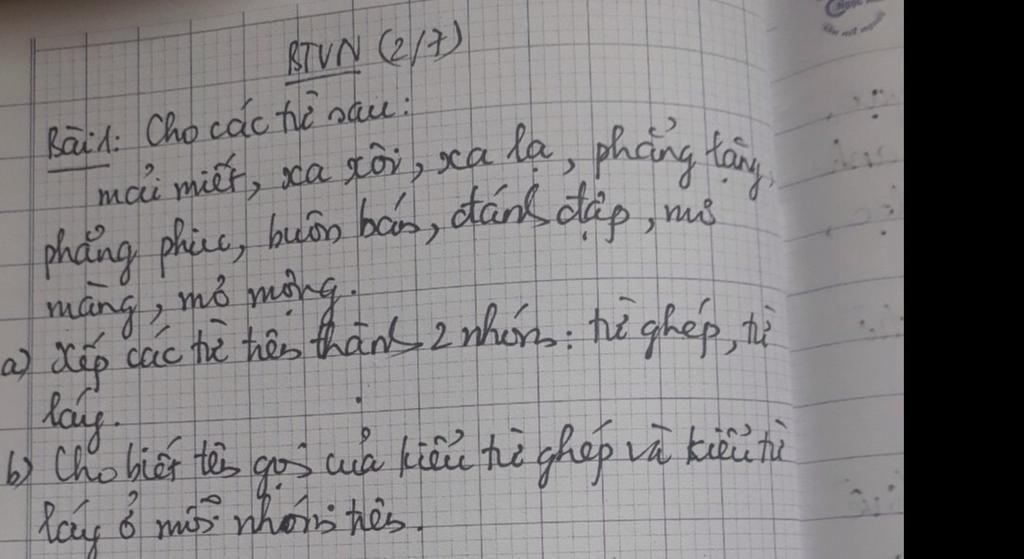 BTVN (2/7)
Bài 1: Cho các từ sau:
mải miết, xa xôi, xa lạ, phẳng lặng,
phẳng phiu, buôn bán, đánh đập, mơ
màng, mơ mộng.
a) Xếp các từ trên thành 2 nhóm: từ ghép, từ
láy.
b) Cho biết tên gọi của kiểu từ ghép và kiểu từ
láy ở mỗi nhóm trên.